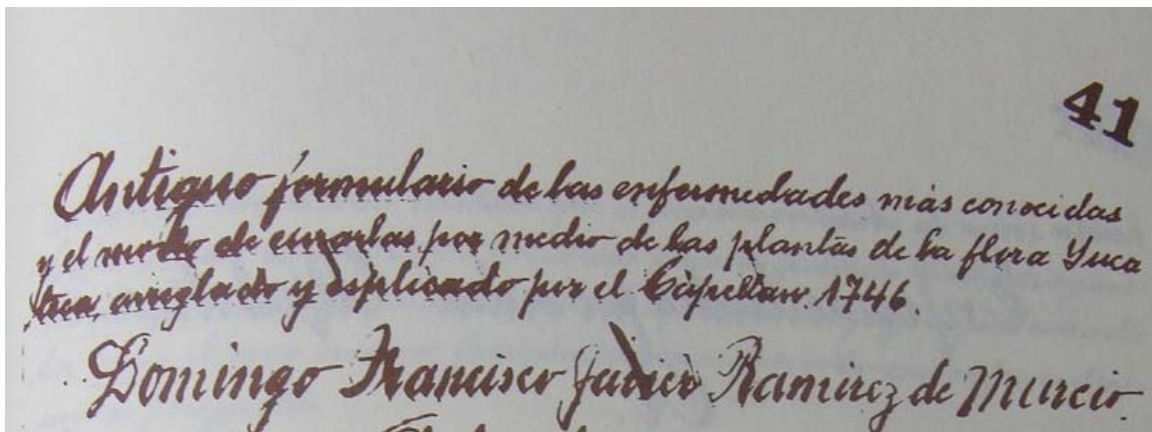 41
Antiguo formulario de las enfermedades más conocidas
y el modo de curarlas por medio de las plantas de la flora Yuca
teca, arreglado y esplicado por el Capellan. 1746.
Domingo Francisco Javier Ramirez de Murcio